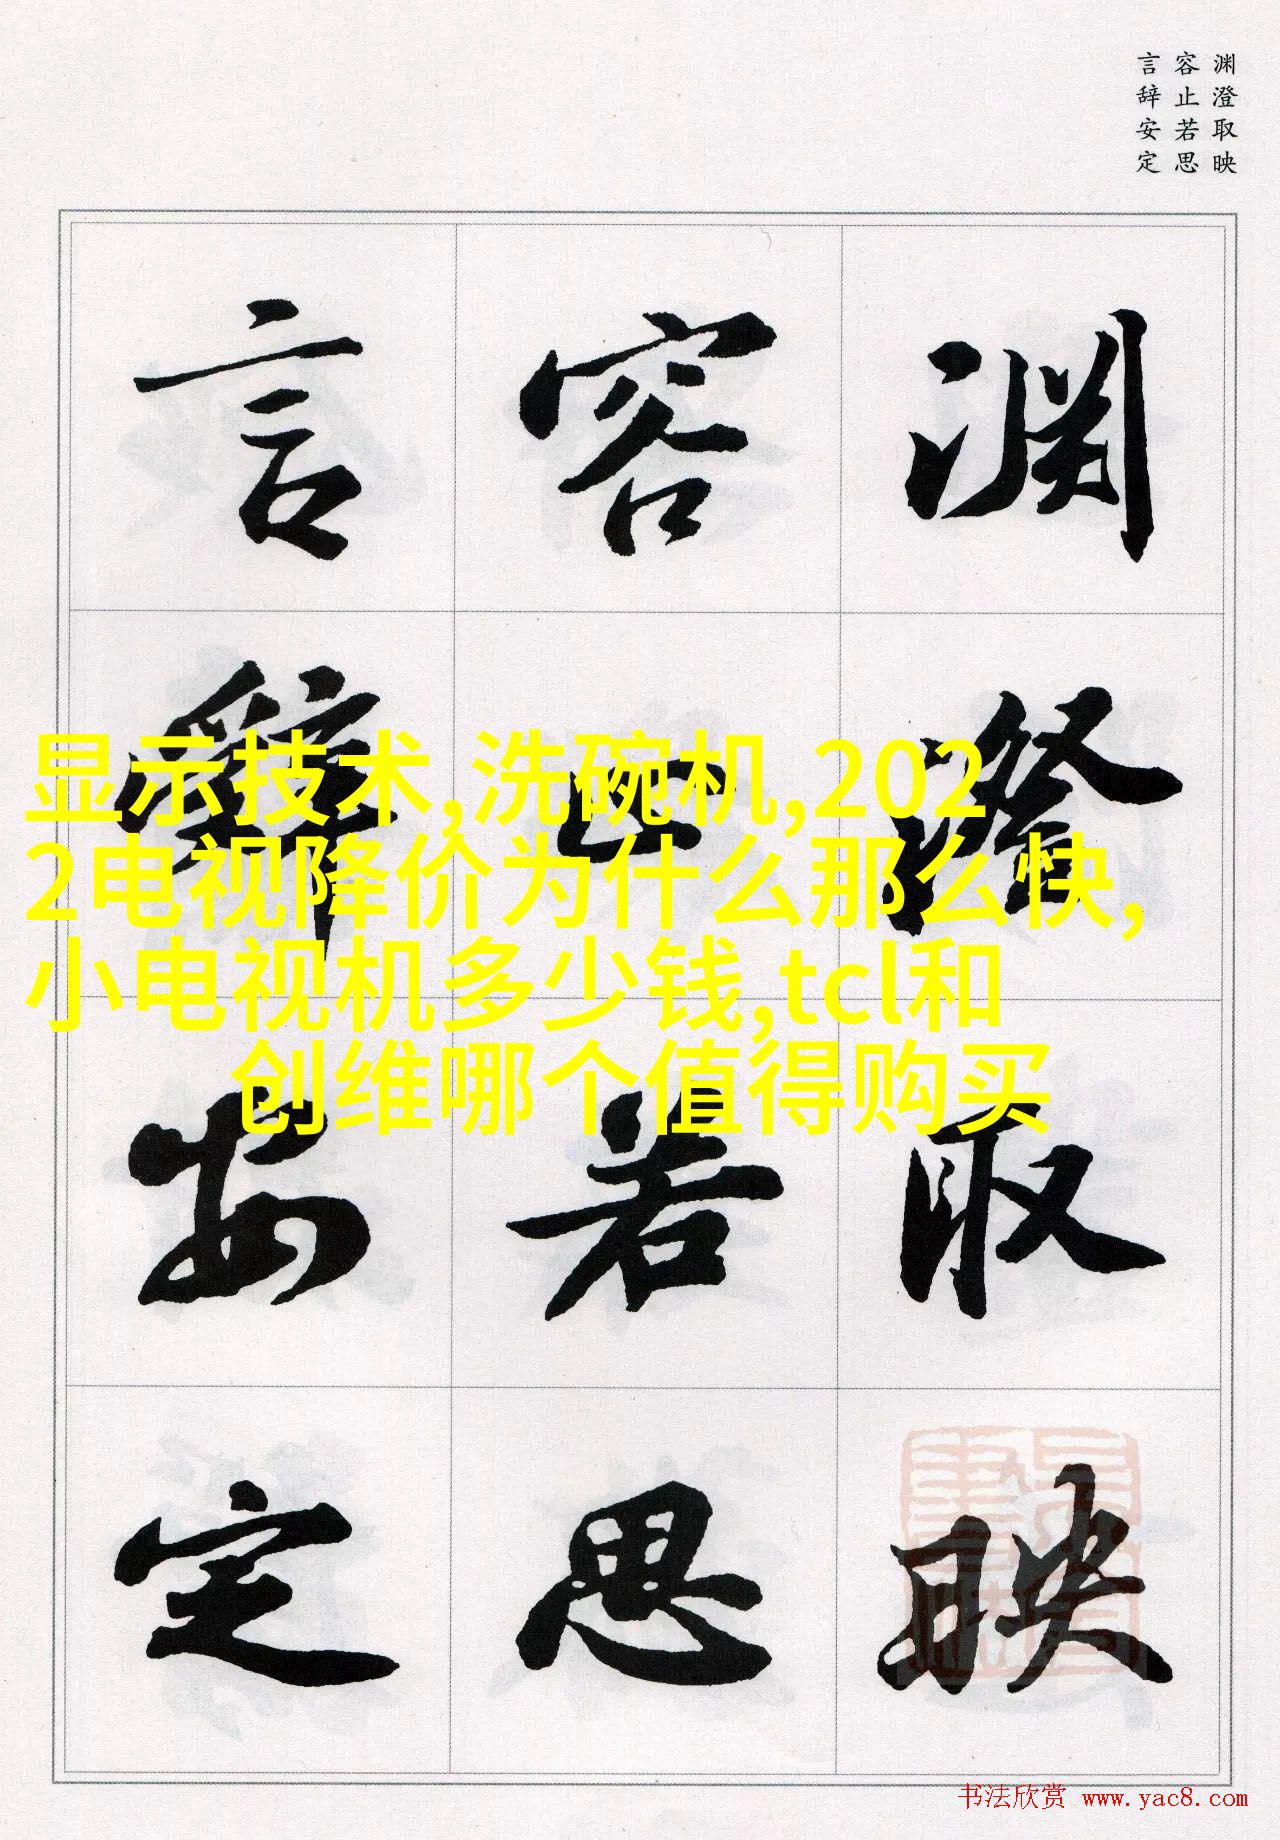 渊澄取映
容止若思
言辞安定
渊澄取映
容止若思
言辭安定
显示技术,洗碗机,202
2电视降价为什么那么快,
小电视机多少钱,tcl和
创维哪个值得购买
书法欣赏 www.yac8.com